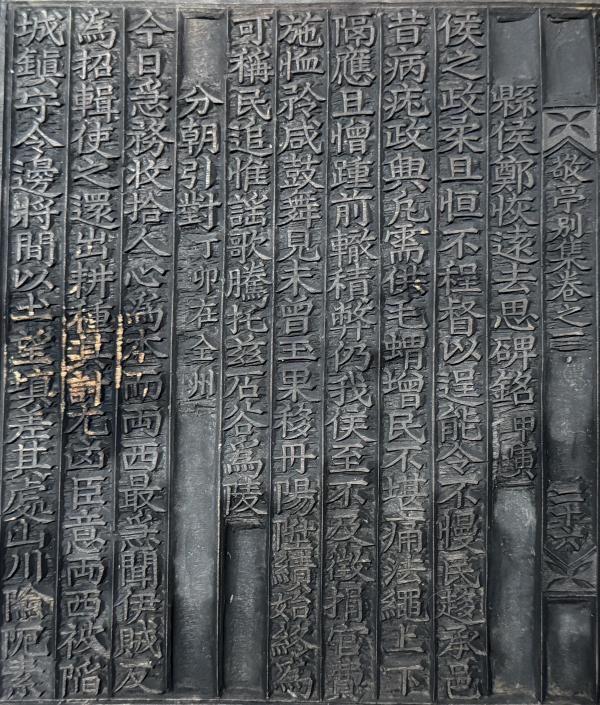 敬亭別集卷之三 二十六
縣侯鄭恢遠去思碑銘 甲寅
侯之政柔且恒不程督以逞能令不慢民趍承邑
昔病疵政與凡需供毛蝟增民不堪痛法繩上下
隔應且憎踵前轍積弊仍我侯至不及徵捐官費
施恤矜咸鼓舞見未曾玉果移丹陽陞縉始終為
可稱民追惟謠歌騰托茲石谷為陵
分朝引對 丁卯在全州
今日急務收拾人心為本而兩西最急聞伊賊反
為招輯使之還出耕種其計尤凶臣意兩西被陷
城鎮守令邊將間以土望填差其處山川險阨素